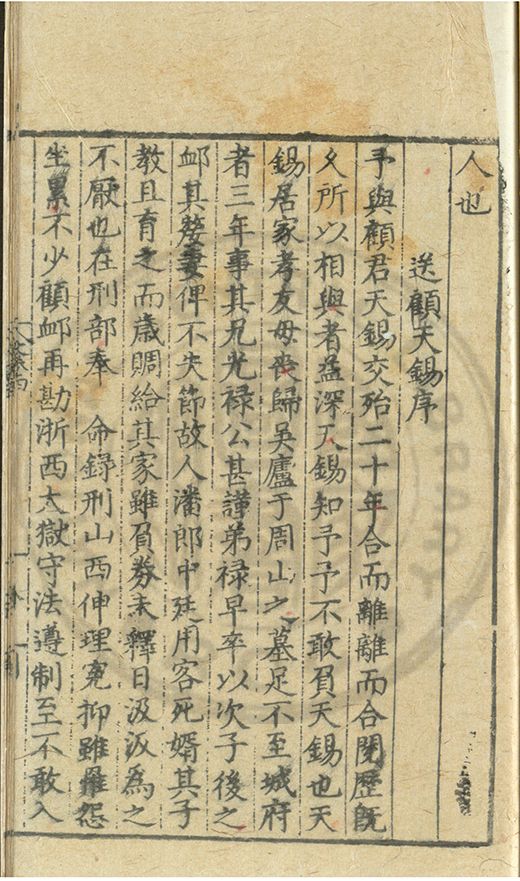 人也
送顧天錫序
予與顧君天錫交殆二十年合而離離而合閱歷既
久所以相與者益深天錫知予予不敢負天錫也天
錫居家孝友母喪歸吳廬于周山之墓足不至城府
者三年事其兄光祿公甚謹弟祿早卒以次子後之
卹其嫠妻俾不失節故人潘郎中廷用客死婿其子
教且育之而歲賙給其家雖負券未釋日汲汲為之
不厭也在刑部奉　命錄刑山西伸理冤抑雖罹怨
坐累不少顧卹再勘浙西大獄守法遵制至不敢入